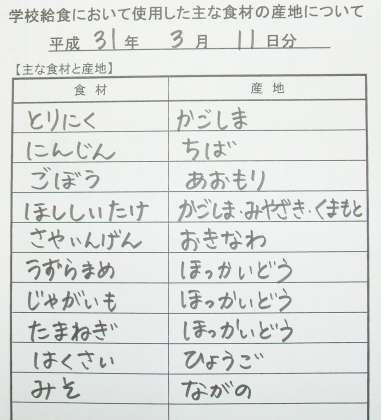 学校給食において使用した主な食材の産地について
平成 31 年 3 月 11 日分
【主な食材と産地】
食材 産地
とりにく かごしま
にんじん ちば
ごぼう あおもり
ほししいたけ かごしま・みやざき・くまもと
さやいんげん おきなわ
うずらまめ ほっかいどう
じゃがいも ほっかいどう
たまねぎ ほっかいどう
はくさい ひょうご
みそ ながの